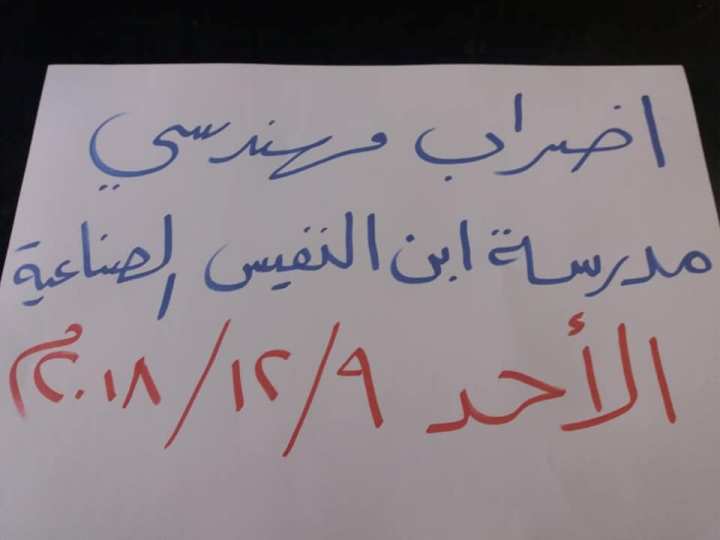 اضراب مهندسي
مدرسة ابن النفيس الصناعية
الأحد ٢٠١٨/١٢/٩م